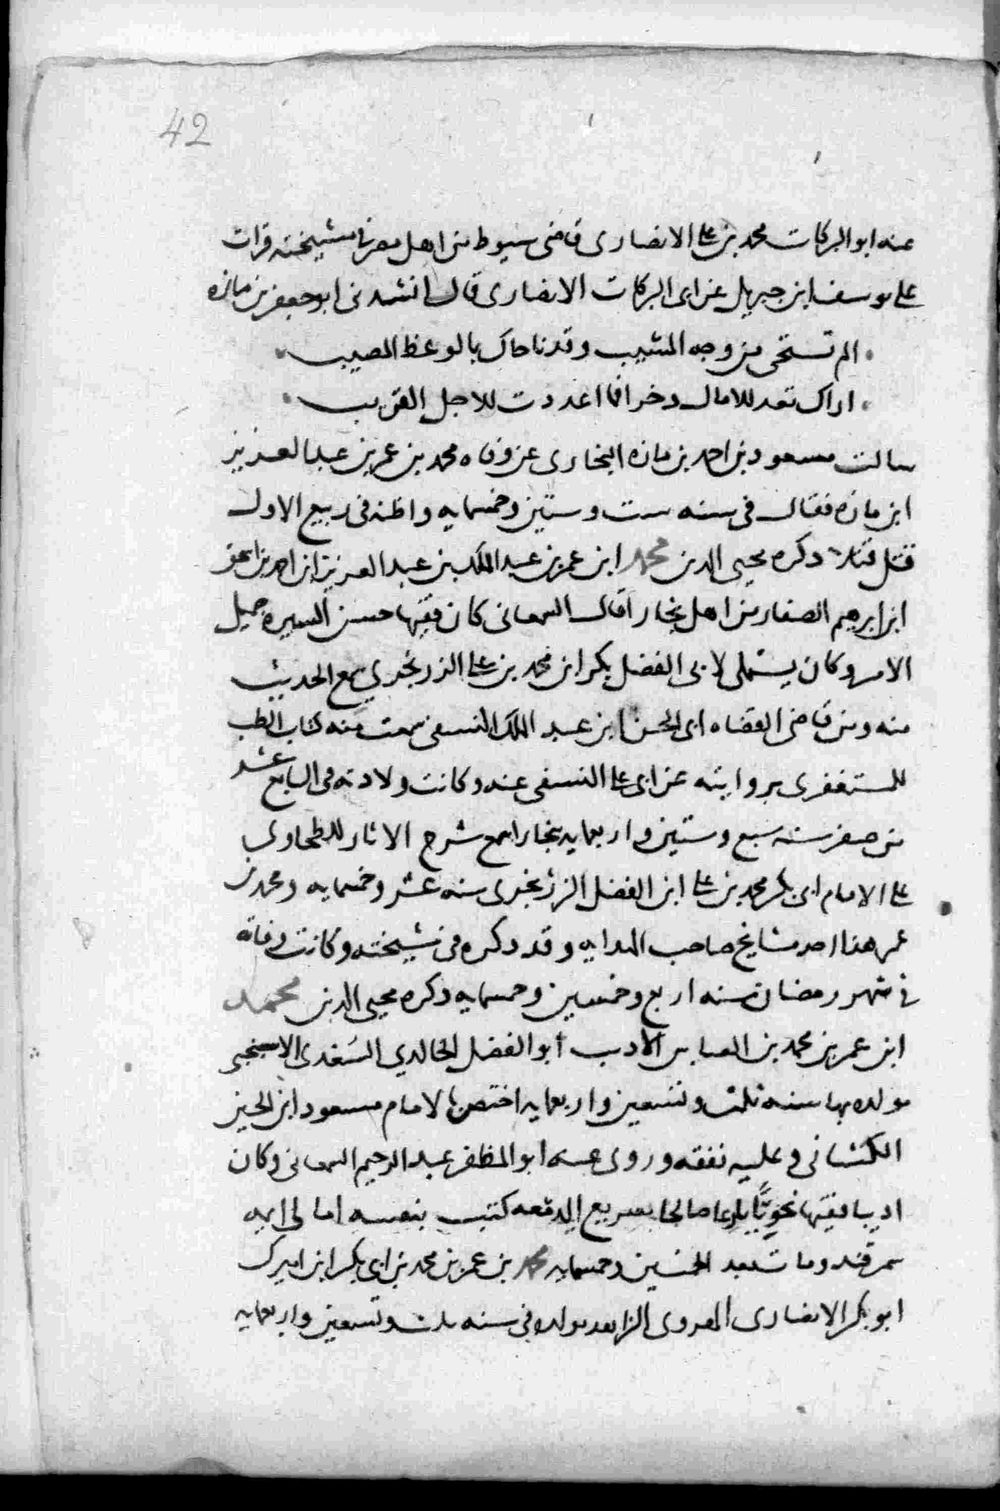 42
عنه ابو البركات محمد بن على الانصارى قاضى سيوط من اهل مصر فى مشيخته قرات
على يوسف ابن جبريل عن ابى البركات الانصارى قال انشدنى ابو جعفر بن مازه
الم تستحى من وجه المشيب وقد ناجاك بالوعظ المصيب
اراك تعد للامال دخرا فما اعددت للاجل القريب
سالت مسعود بن احمد بن مازه البخارى عن وفاه محمد بن عمر بن عبد العزيز
ابن مازه فقال فى سنه ست وستين وخمسمايه واظنه فى ربيع الاول
قتل قتلا دكره محيى الدين محمد ابن عمر بن عبد الملك بن عبد العزيز ابن احمد بن اسحق
ابن ابرهيم الصفار من اهل بخارا قال السمعانى كان فقيها حسن السيره جميل
الامر وكان يستملى لابى الفضل بكر ابن محمد بن على الزرنجرى سمع الحديث
منه ومن قاضى القضاه ابى الحسن ابن عبد الملك النسفى سمعت منه كتاب الطب
للمستغفرى بروايته عن ابى على النسفى عنه وكانت ولادته فى السابع عشر
من صفر سنه سبع وستين واربعمايه ببخارا سمع شرح الاثار للطحاوى
على الامام ابى بكر محمد بن على ابن الفضل الزرنجرى سنه عشر وخمسمايه ومحمد بن
عمر هذا احد مشايخ صاحب الهدايه وقد دكره فى مشيخته وكانت وفاته
فى شهر رمضان سنه اربع وخمسين وخمسمايه دكره محيى الدين محمد
ابن عمر بن محمد بن العباس الادب ابو الفضل الخالدي السغدى
مولده بها سنه ثلث وتسعين واربعمايه اختص بالامام مسعود ابن الحسين
الكشانى وعليه تفقه وروى عنه ابو المظفر عبد الرحيم السمعانى وكان
اديبا فقيها نحويا بارعا صالحا سريع الدمعه كتب بنفسه امالى ايمه
سمرقند ومات بعد الخمسين وخمسمايه محمد بن عمر بن محمد بن ابى بكر ابن اميرك
ابو بكر الانصارى الهروى الزاهد مولده فى سنه ثلث وتسعين واربعمايه